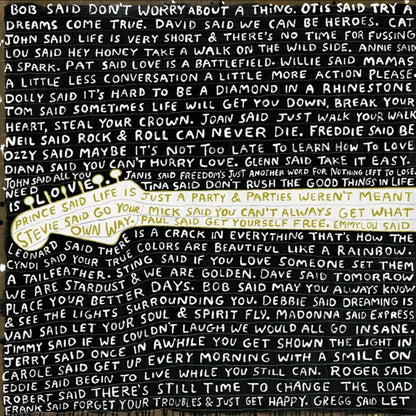 BOB SAID DON'T WORRY ABOUT A THING. OTIS SAID TRY A
DREAMS COME TRUE. DAVID SAID WE CAN BE HEROES. CAT
JOHN SAID LIFE IS VERY SHORT & THERE'S NO TIME FOR FUSSING
LOU SAID HEY HONEY TAKE A WALK ON THE WILD SIDE. ANNIE SAID
A SPARK. PAT SAID LOVE IS A BATTLEFIELD. WILLIE SAID MAMAS
A LITTLE LESS CONVERSATION A LITTLE MORE ACTION PLEASE
DOLLY SAID IT'S HARD TO BE A DIAMOND IN A RHINESTONE
TOM SAID SOMETIMES LIFE WILL GET YOU DOWN, BREAK YOUR
HEART, STEAL YOUR CROWN. JOAN SAID JUST WALK YOUR WALK
NEIL SAID ROCK & ROLL CAN NEVER DIE. FREDDIE SAID BE
OZZY SAID MAYBE IT'S NOT TOO LATE TO LEARN HOW TO LOVE
DIANA SAID YOU CAN'T HURRY LOVE. GLENN SAID TAKE IT EASY.
JOHN SAID ALL YOU JANIS SAID FREEDOM'S JUST ANOTHER WORD FOR NOTHING LEFT TO LOSE.
NEED IS LOVE. TINA SAID DON'T RUSH THE GOOD THINGS IN LIFE
PRINCE SAID LIFE IS JUST A PARTY & PARTIES WEREN'T MEANT
STEVIE SAID GO YOUR OWN WAY. MICK SAID YOU CAN'T ALWAYS GET WHAT
PAUL SAID GET YOURSELF FREE. EMMYLOU SAID
LEONARD SAID THERE IS A CRACK IN EVERYTHING THAT'S HOW THE
CYNDI SAID YOUR TRUE COLORS ARE BEAUTIFUL LIKE A RAINBOW.
A TAILFEATHER. STING SAID IF YOU LOVE SOMEONE SET THEM
WE ARE STARDUST & WE ARE GOLDEN. DAVE SAID TOMORROW
PLACE YOUR BETTER DAYS. BOB SAID MAY YOU ALWAYS KNOW
& SEE THE LIGHTS SURROUNDING YOU. DEBBIE SAID DREAMING IS
VAN SAID LET YOUR SOUL & SPIRIT FLY. MADONNA SAID EXPRESS
JIMMY SAID IF WE COULDN'T LAUGH WE WOULD ALL GO INSANE.
JERRY SAID ONCE IN AWHILE YOU GET SHOWN THE LIGHT IN
CAROLE SAID GET UP EVERY MORNING WITH A SMILE ON
EDDIE SAID BEGIN TO LIVE WHILE YOU STILL CAN. ROGER SAID
ROBERT SAID THERE'S STILL TIME TO CHANGE THE ROAD
FRANK SAID FORGET YOUR TROUBLES & JUST GET HAPPY. GREGG SAID LET